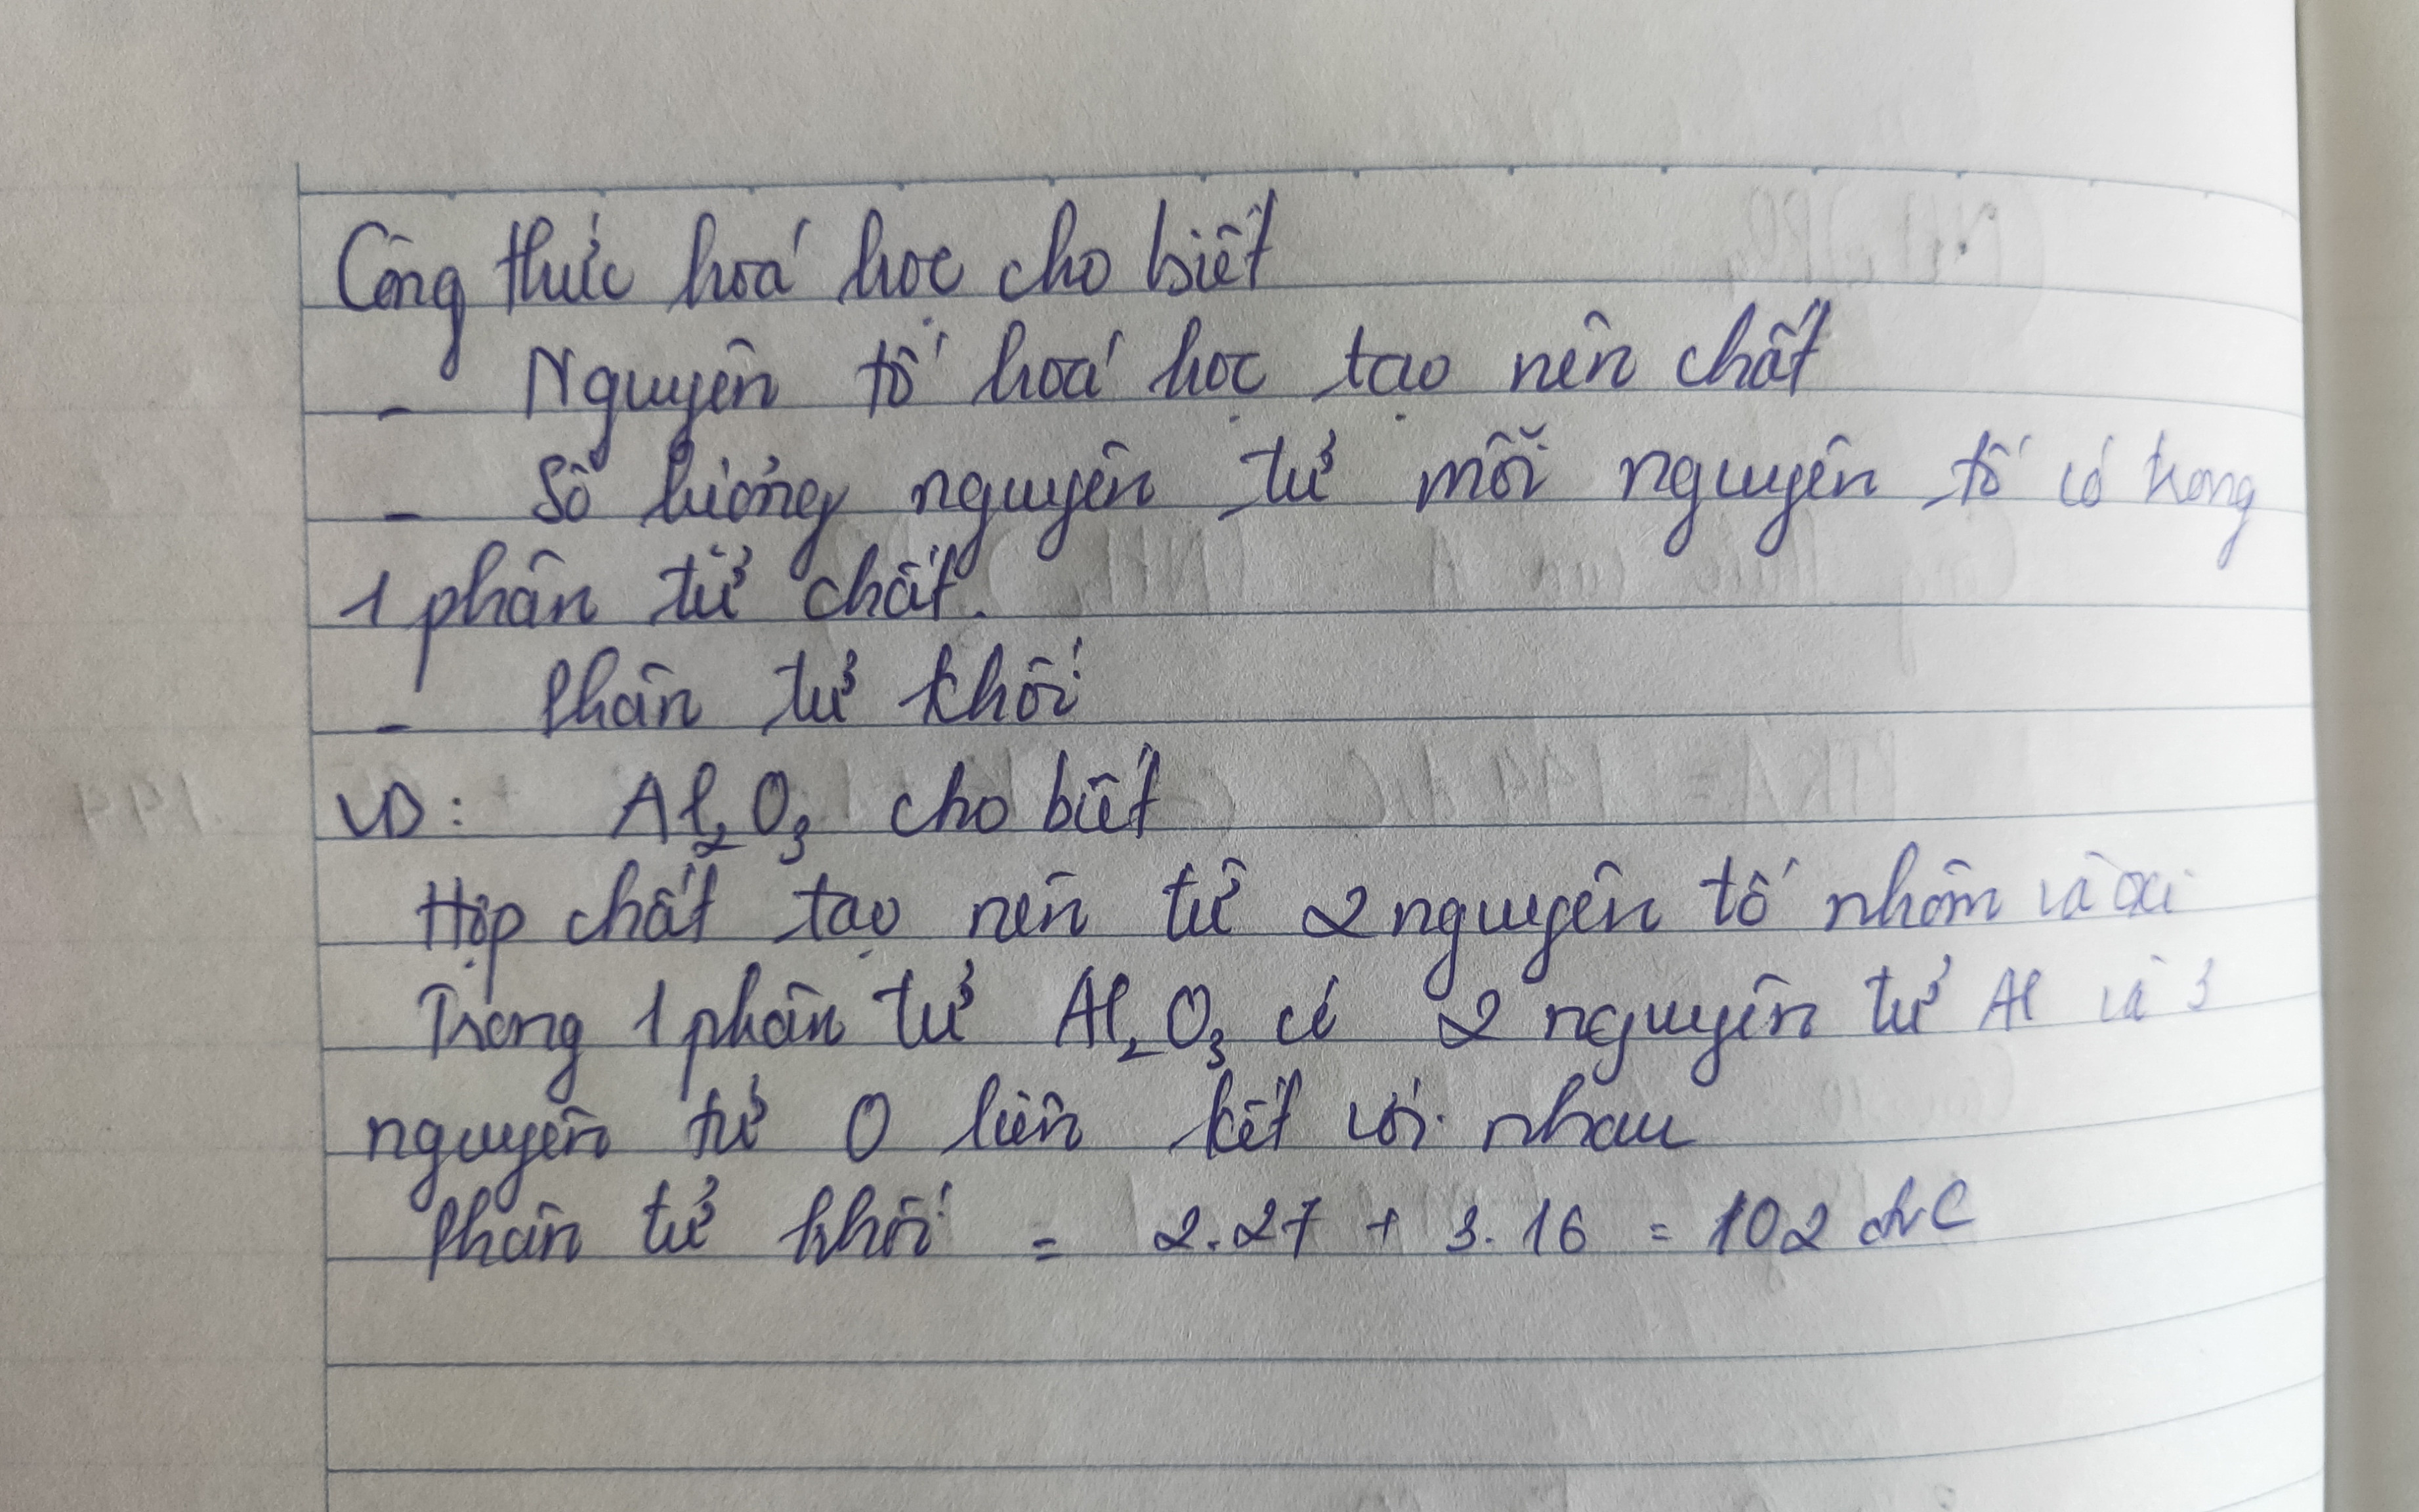 Công thức hoá học cho biết
- Nguyên tố hoá học tạo nên chất
- Số lượng nguyên tử mỗi nguyên tố có trong
1 phân tử chất.
- Phân tử khối
VD: Al₂O₃ cho biết
Hợp chất tạo nên từ 2 nguyên tố nhôm và oxi
Trong 1 phân tử Al₂O₃ có 2 nguyên tử Al và 3
nguyên tử O liên kết với nhau
Phân tử khối = 2.27 + 3.16 = 102 đvC